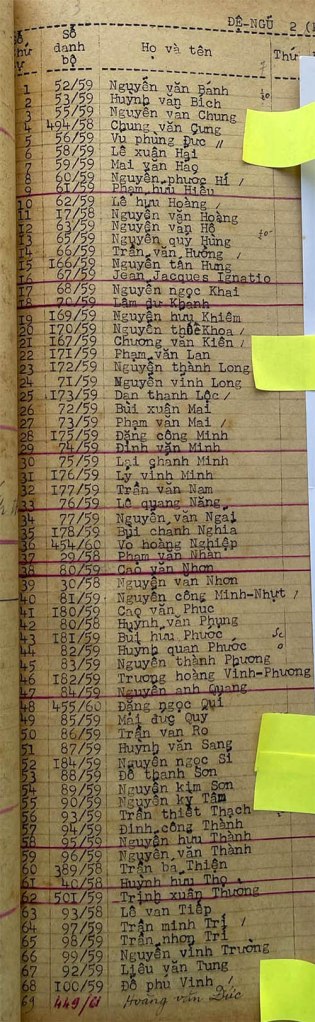 ĐỆ-NGŨ 2 (
Số Thứ Tự Số danh bộ Họ và tên Thứ
1 52/59 Nguyễn văn Bánh
2 53/59 Huỳnh văn Bích
3 55/59 Nguyễn văn Chung
4 494/58 Chung văn Cưng
5 56/59 Vũ phùng Đức
6 58/59 Lê xuân Hai
7 59/59 Mai văn Hào
8 60/59 Nguyễn phước Hí
9 61/59 Phạm hữu Hiếu
10 62/59 Lê hữu Hoàng
11 17/58 Nguyễn văn Hoàng
12 63/59 Nguyễn văn Hổ
13 65/59 Nguyễn quy Hùng
14 66/59 Trần văn Hường
15 166/59 Nguyễn tân Hưng
16 67/59 Jean Jacques Ignatio
17 68/59 Nguyễn ngọc Khai
18 70/59 Lâm dư Khánh
19 169/59 Nguyễn hữu Khiêm
20 170/59 Nguyễn thức Khoa
21 167/59 Chương văn Kiên
22 171/59 Phạm văn Lan
23 172/59 Nguyễn thành Long
24 71/59 Nguyễn vĩnh Long
25 173/59 Dan thanh Lộc
26 72/59 Bùi xuân Mai
27 73/59 Phạm văn Mai
28 175/59 Đặng công Minh
29 74/59 Đinh văn Minh
30 75/59 Lại chánh Minh
31 176/59 Lý vĩnh Minh
32 177/59 Trần văn Nam
33 76/59 Lê quang Năng
34 77/59 Nguyễn văn Ngai
35 178/59 Bùi chanh Nghĩa
36 454/60 Võ hoàng Nghiệp
37 29/58 Phạm văn Nhàn
38 80/59 Cao văn Nhơn
39 30/58 Nguyễn văn Nhơn
40 81/59 Nguyễn công Minh-Nhựt
41 180/59 Cao văn Phuc
42 80/58 Huỳnh văn Phụng
43 181/59 Bùi hữu Phước
44 82/59 Huỳnh quan Phước
45 83/59 Nguyễn thành Phương
46 182/59 Trương hoàng Vinh-Phương
47 84/59 Nguyễn anh Quang
48 455/60 Đặng ngọc Quí
49 85/59 Mai đức Quy
50 86/59 Trần văn Ro
51 87/59 Huỳnh văn Sang
52 184/59 Nguyễn ngọc Si
53 88/59 Đỗ thanh Sơn
54 89/59 Nguyễn kim Sơn
55 90/59 Nguyễn ky Tâm
56 93/59 Trần thiết Thạch
57 94/59 Đinh công Thành
58 95/59 Nguyễn hữu Thành
59 96/59 Nguyễn văn Thành
60 389/58 Trần ba Thiện
61 40/58 Huỳnh hữu Thọ
62 501/59 Trịnh xuân Thưởng
63 93/58 Lê văn Tiếp
64 97/59 Trần minh Trí
65 98/59 Trần nhơn Trí
66 99/59 Nguyễn vĩnh Trường
67 92/59 Liêu văn Tung
68 100/59 Đỗ phú Vinh
69 449/61 Hoàng văn Đức